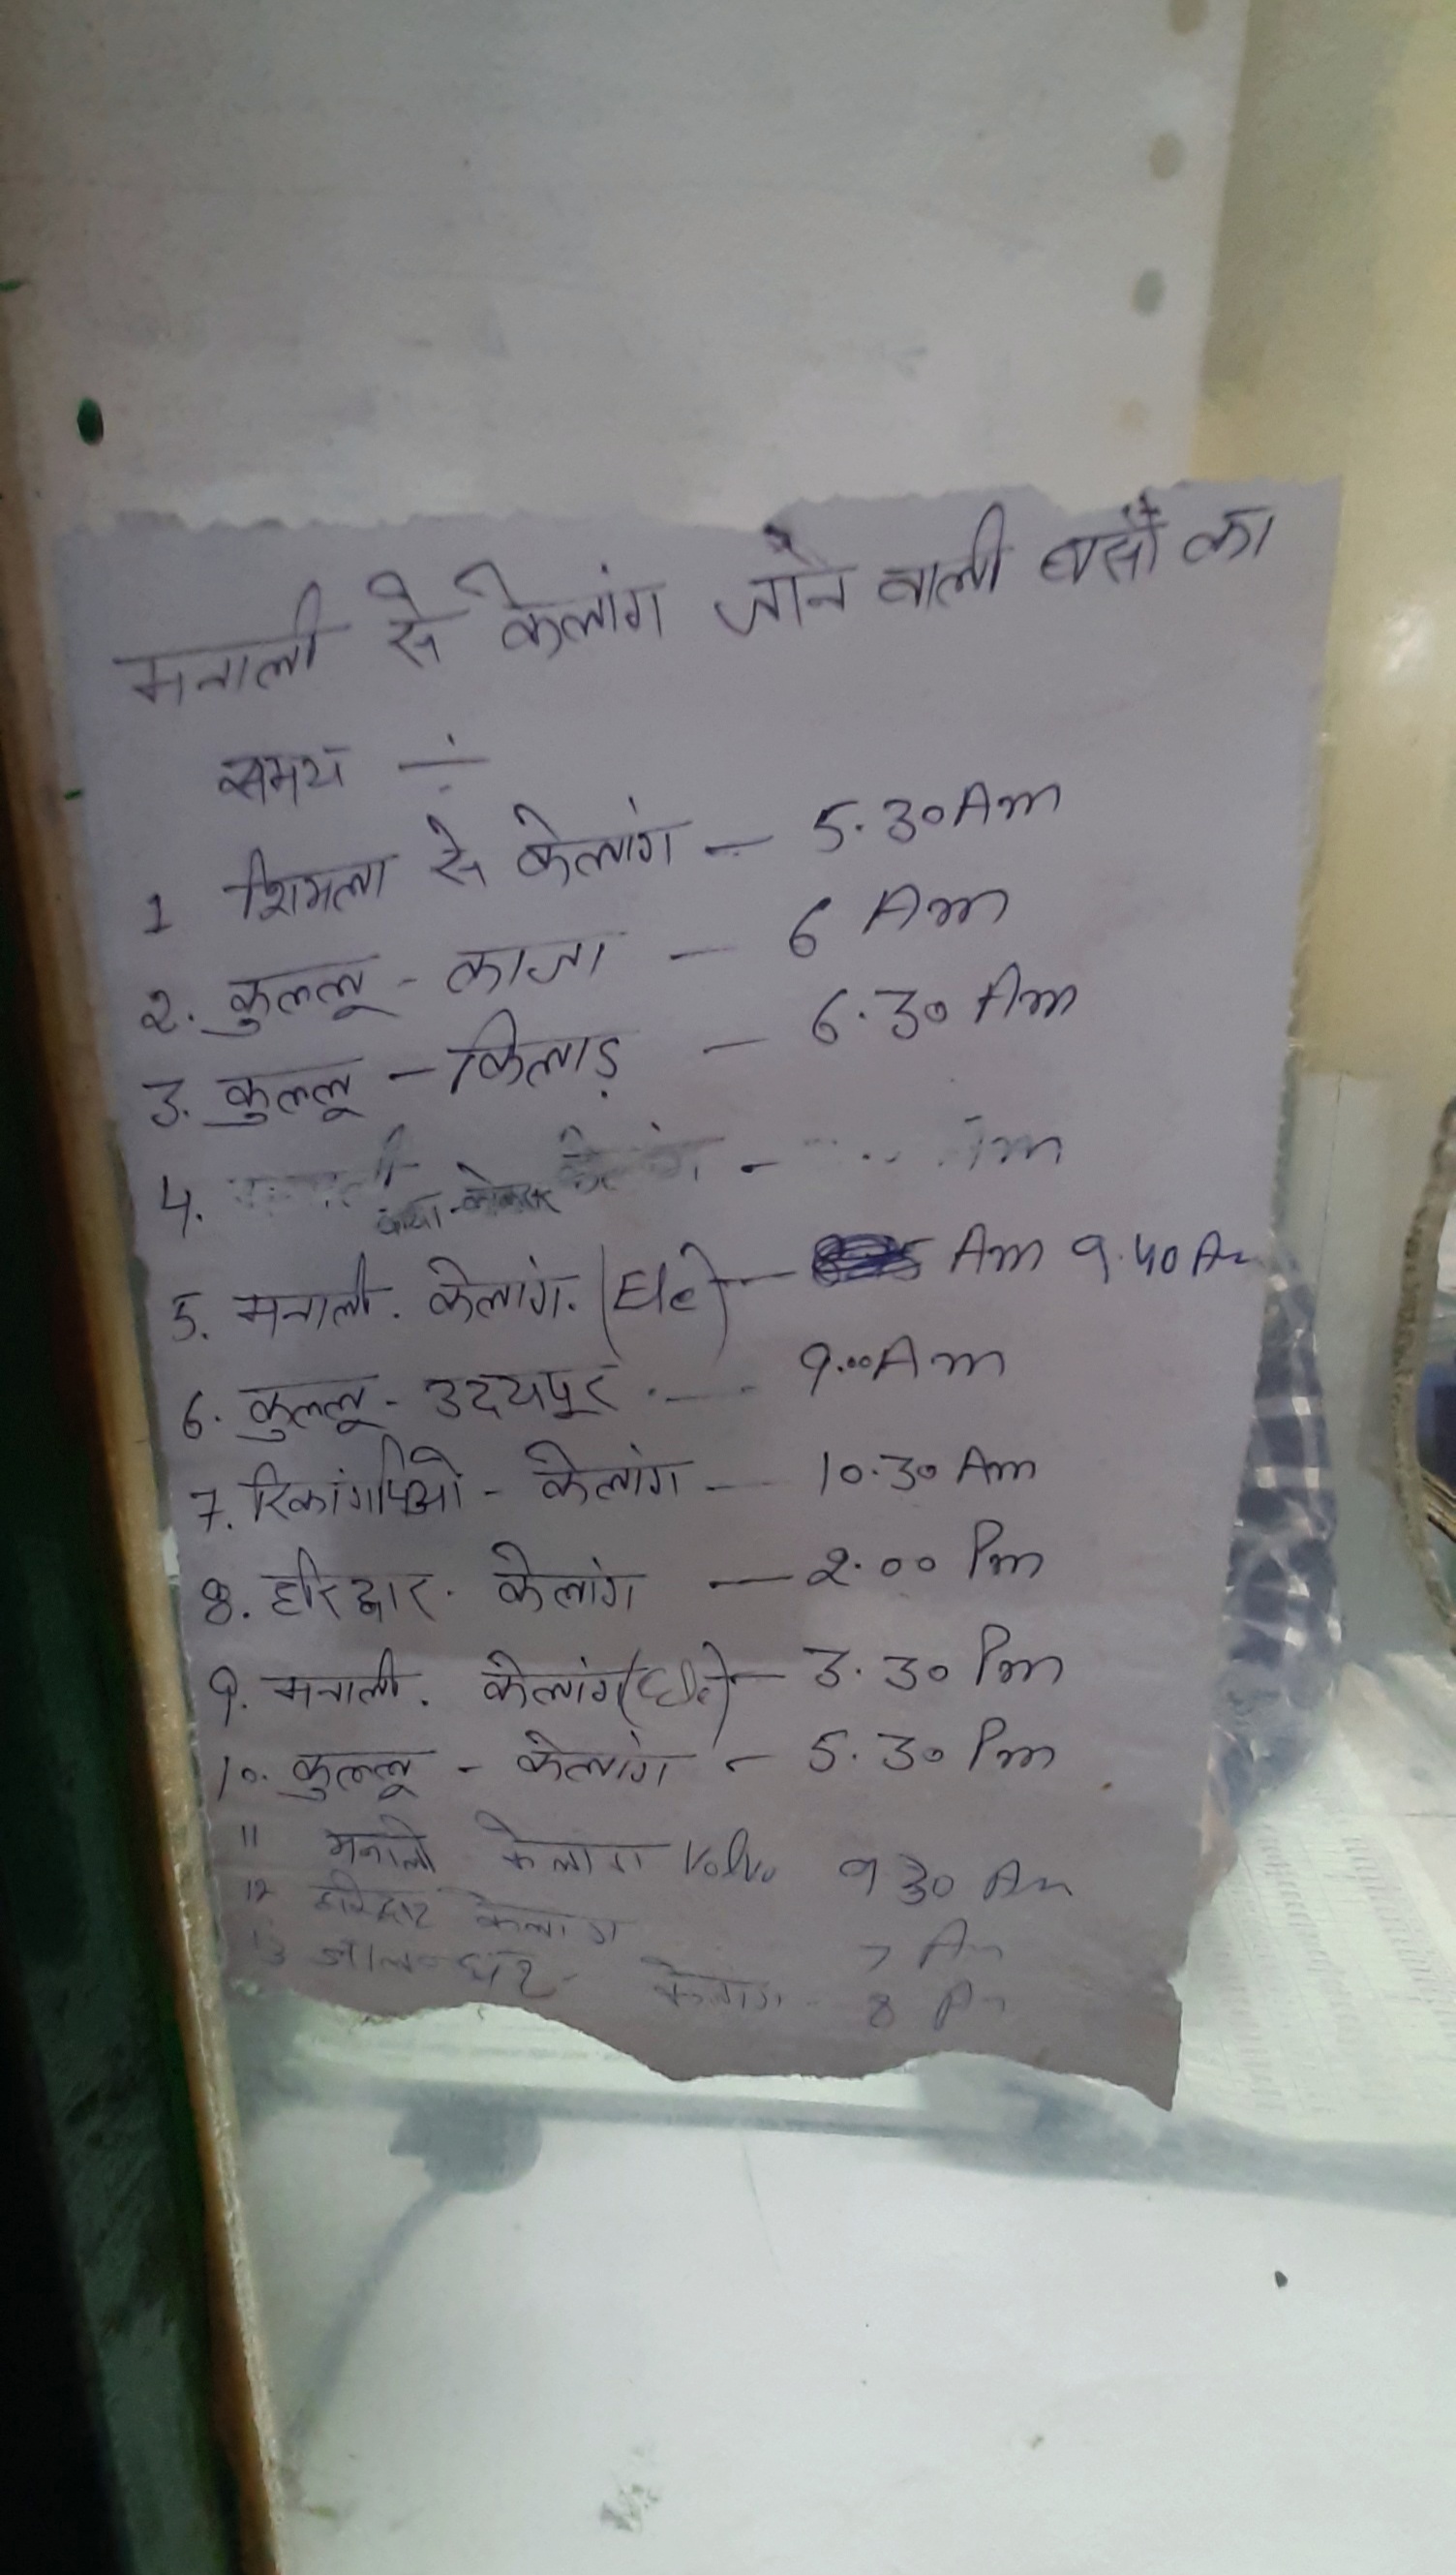 मनाली से केलांग जाने वाली बसों का
समय ÷
1 शिमला से केलांग – 5.30 Am
2. कुल्लू - काजा – 6 Am
3. कुल्लू – किलाड़ – 6.30 Am
4. – Am
5. मनाली. केलांग. (Ele) – Am 9.40 Am
6. कुल्लू - उदयपूर . – 9.00 Am
7. रिकांगपिओ - केलांग – 10.30 Am
8. हरिद्वार. केलांग – 2.00 Pm
9. मनाली. केलांग (Ele) – 3.30 Pm
10. कुल्लू - केलांग - 5.30 Pm
11 मनाली केलांग Volvo 9 30 Am
12 हरिद्वार केलांग 7 Am
13 जालन्धर - केलांग - 8 Pm